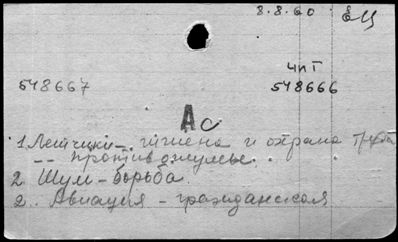 8.8.60 ЕЦ
чит
548667 548666
Ас
1. Летчики - гигиена и охрана труда
-- противошумы.
2. Шум - борьба.
2. Авиация - гражданская